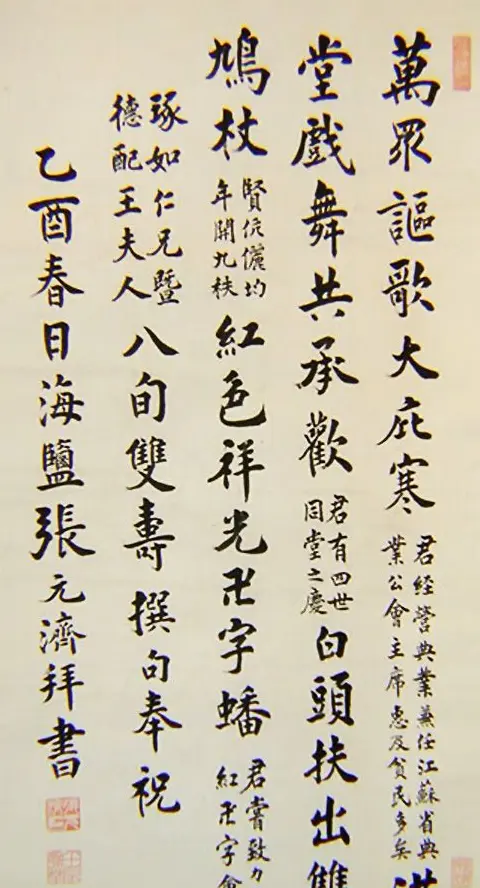 萬眾謳歌大庇寒君經營典業兼任江蘇省典業公會主席惠及貧民多矣滿
堂戲舞共承歡君有四世同堂之慶白頭扶出雙
鳩杖賢伉儷均年開九秩紅色祥光卍字蟠君嘗致力紅卍字會
琢如仁兄暨德配王夫人八旬雙壽撰句奉祝
乙酉春日海鹽張元濟拜書